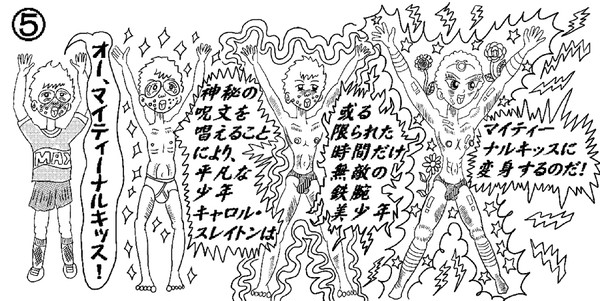 ⑤
オー、マイティーナルキッス！
MAX
神秘の
呪文を
唱えること
により、
平凡な
少年
キャロル・
スレイトンは
或る
限られた
時間だけ
無敵の
鉄腕
美少年
マイティー
ナルキッスに
変身するのだ！